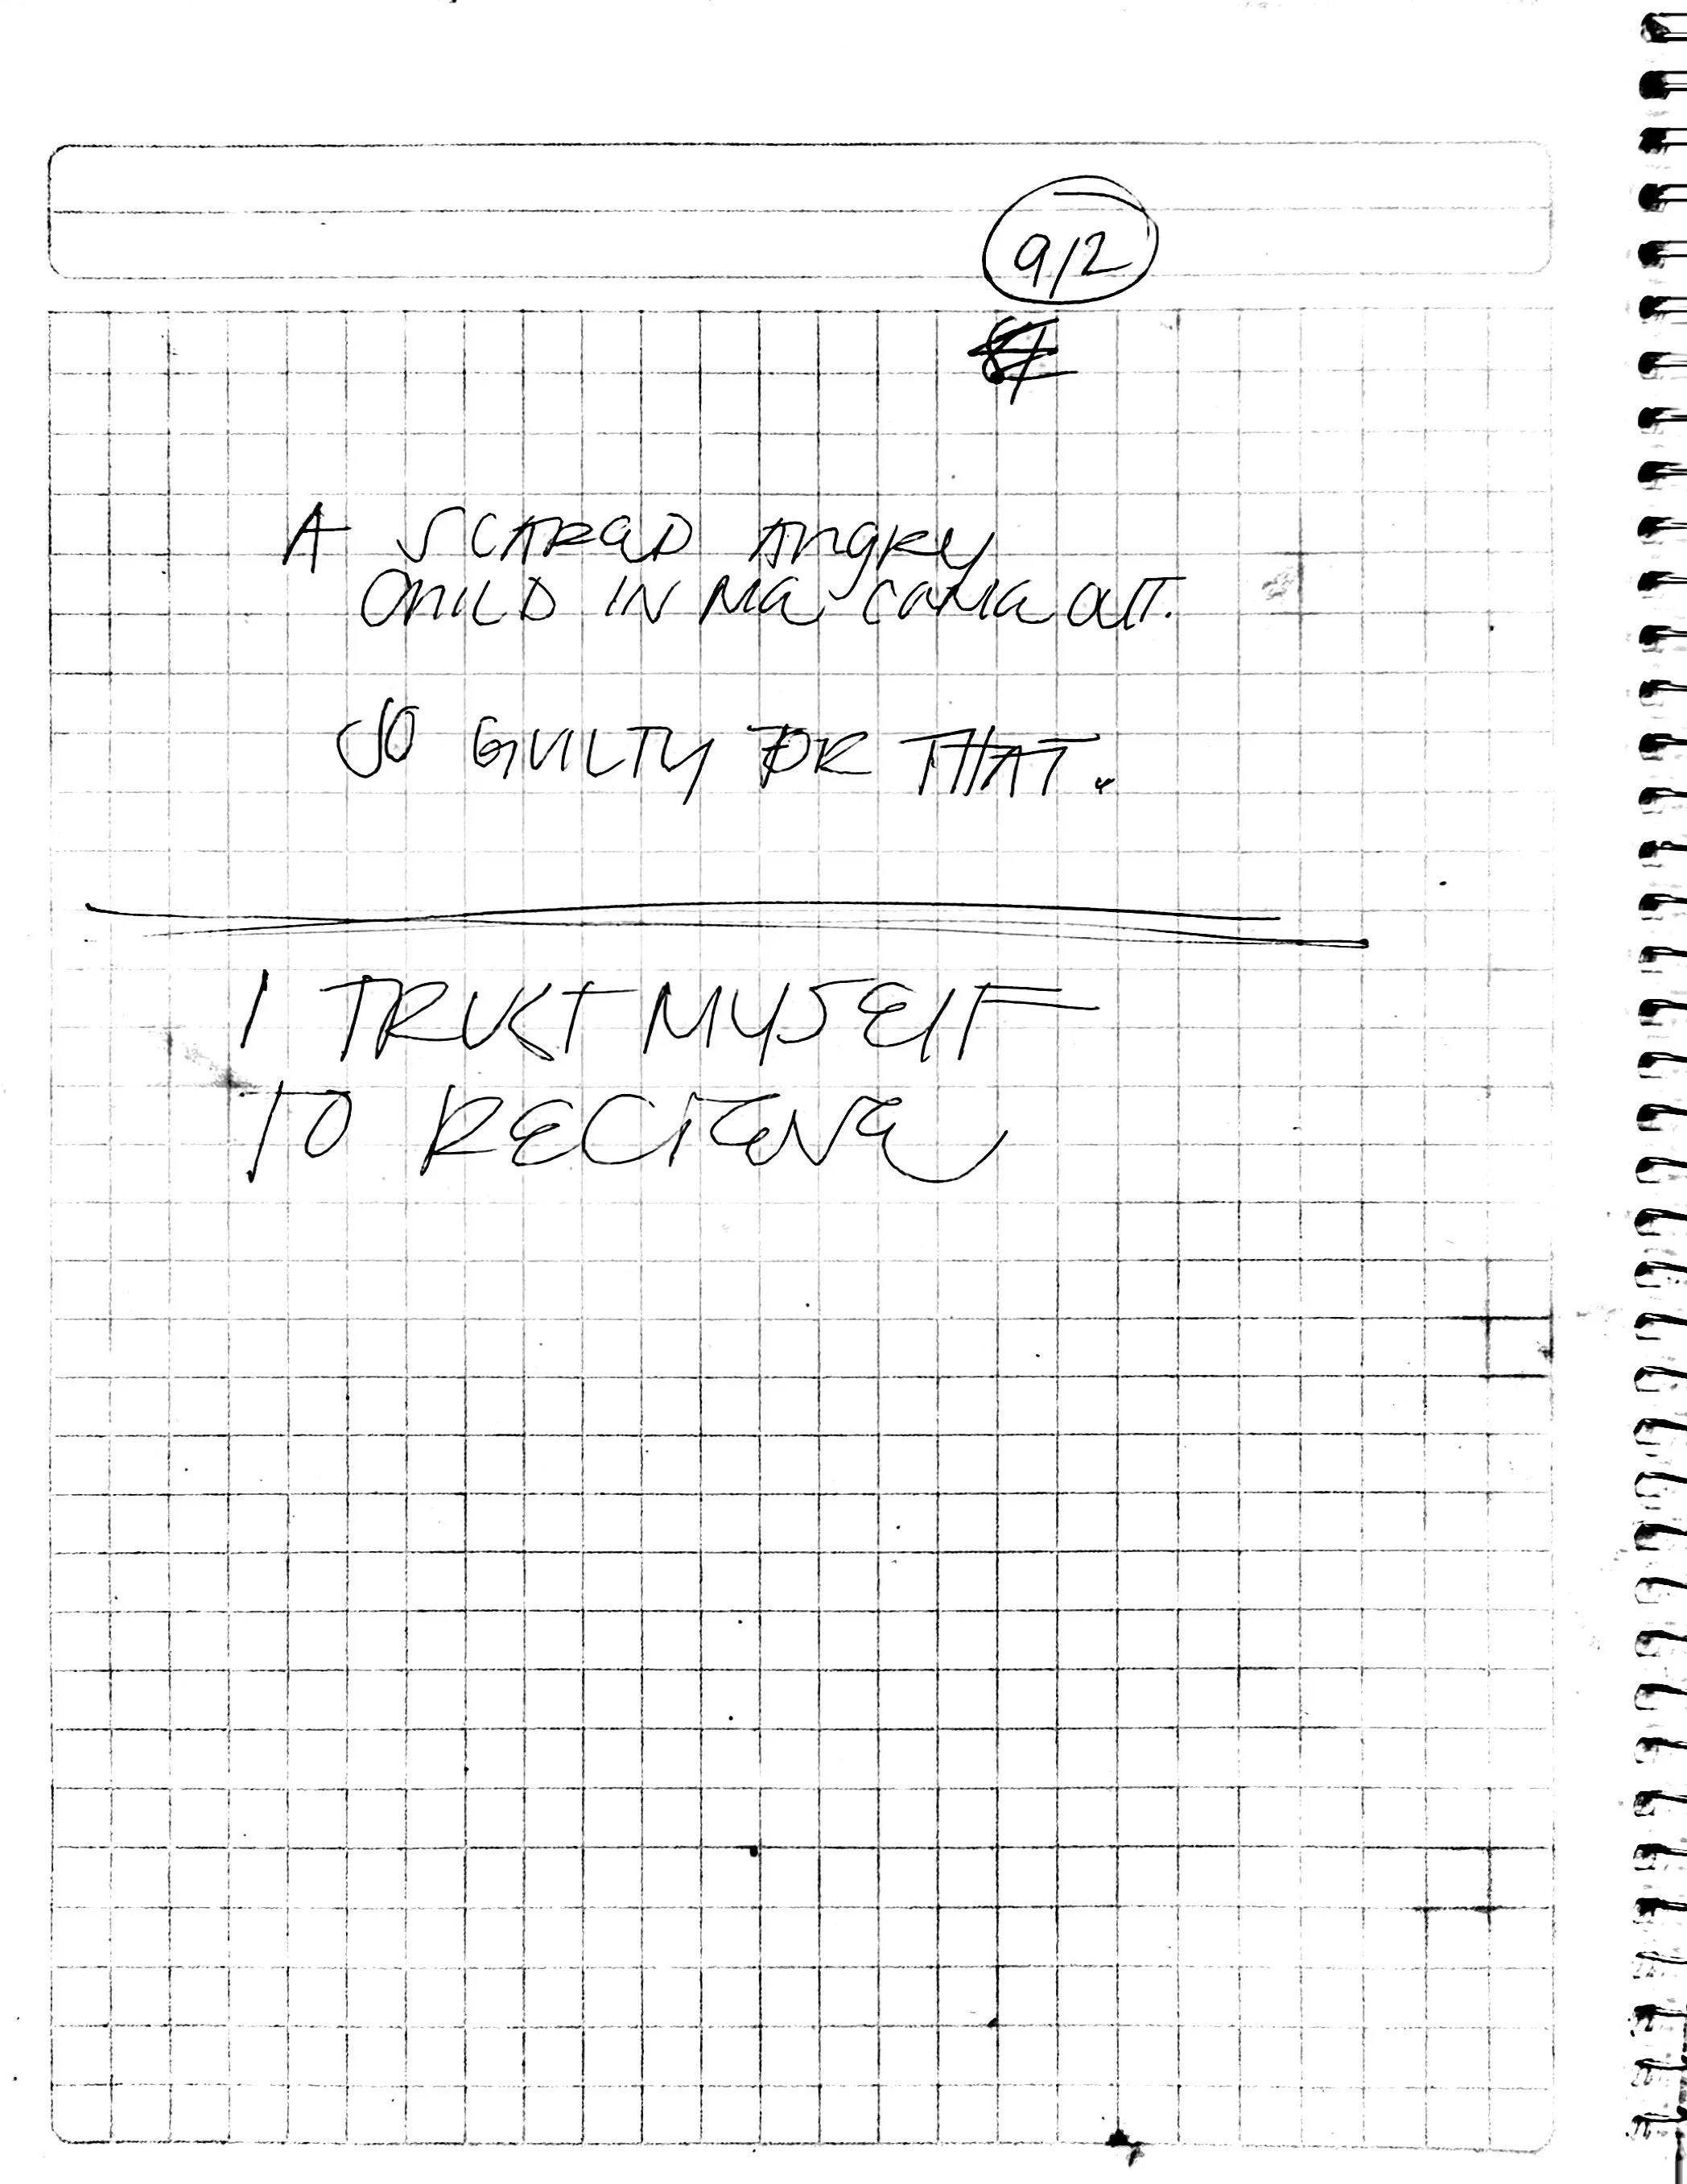 9/2
A SCARED ANGRY
CHILD IN ME CAME OUT.
SO GUILTY FOR THAT.
I TRUST MYSELF
TO RECIEVE